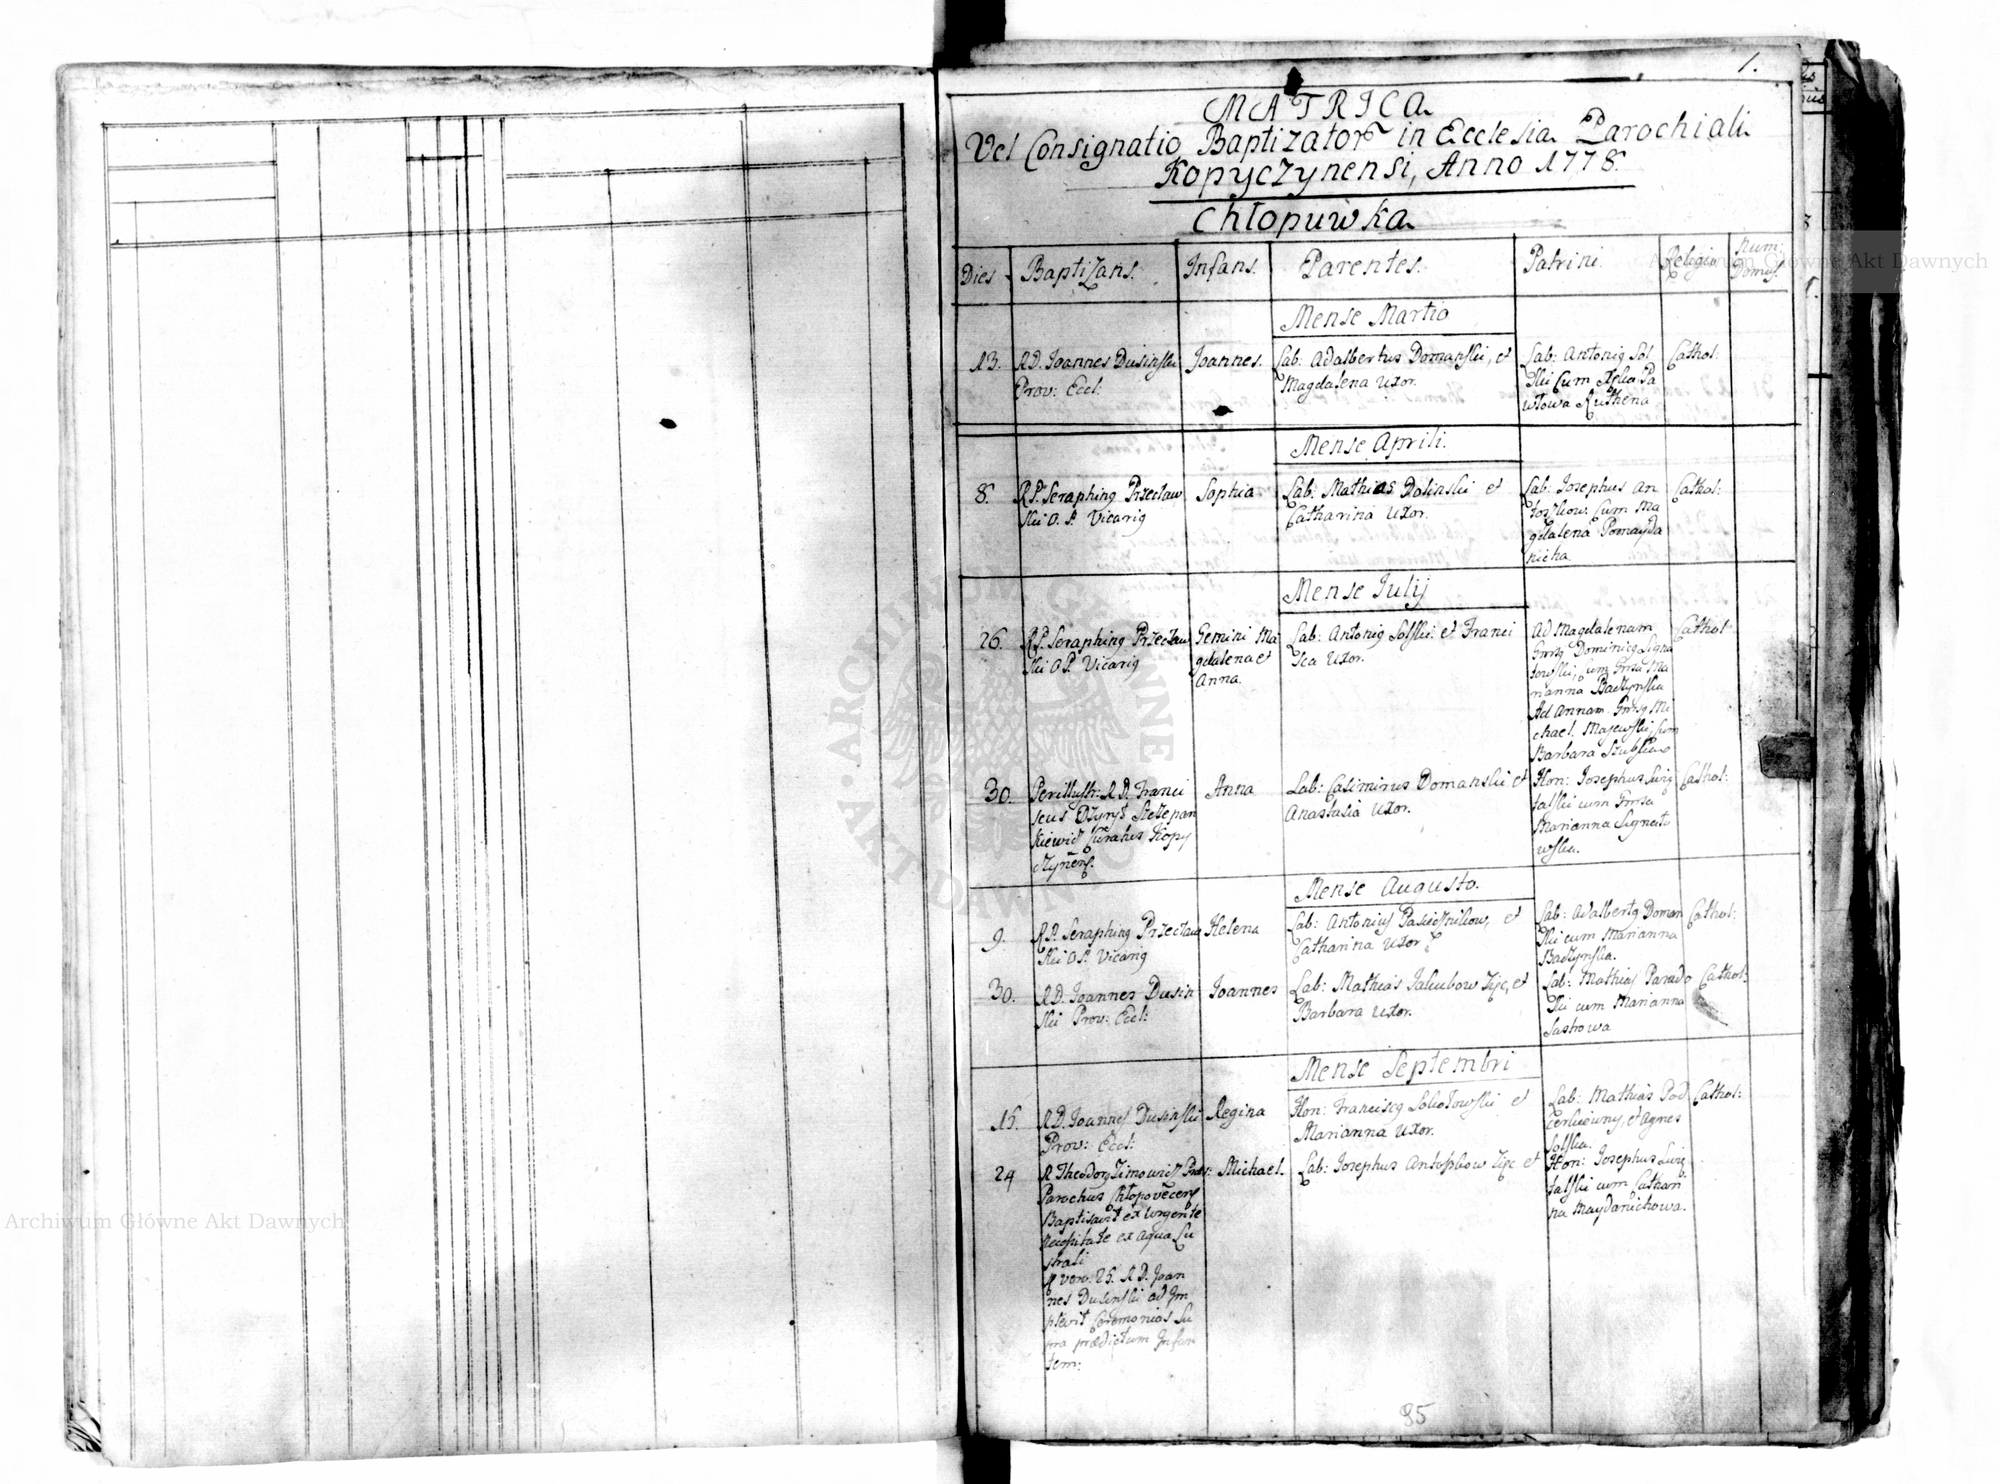 1.
MATRICA
Vel Consignatio Baptizator in Ecclesia Parochiali
Kopyczynensi, Anno 1778
Chłopuwka
Dies Baptizans. Infans. Parentes. Patrini. Religio Num: Domus.
Mense Martio
13. RD. Joannes Dusinski
Prov: Eccl:
Joannes.
Lab: Adalbertus Domanski, et
Magdalena Uxor.
Lab: Antonig Sol
ski Cum
włowa Ruthena
Cathol:
Mense Aprili.
8. RP. Seraphing Przecław
ski O. P. Vicarig
Sophia
Lab: Mathias Dolinski et
Catharina Uxor.
Lab: Josephus An
toszkow Cum Ma
gdalena Pomayda
nicha
Cathol:
Mense Julij
26. RP. Seraphing Przecław
ski OP. Vicarig
Gemini Ma
gdalena et
Anna.
Lab: Antonig Solski et Franci
sca Uxor.
Ad Magdalenam
Dominicg Signa
towski, cum
rianna Baczynska
Ad Annam
chael Majewski, cum
Barbara
Cathol:
30. Perillustr: R.D. Franci
scus Szczepan
kiewicz Curatus Kopy
czynens.
Anna
Lab: Casimirus Domanski et
Anastasia Uxor.
Hon: Josephus
talski cum
Marianna Signato
wska.
Cathol:
Mense Augusto.
9. RP. Seraphing Przecław
ski OP. Vicarig
Helena
Lab: Antonius Pasiecznikow, et
Catharina Uxor
Lab: Adalbertg Doman
ski cum Marianna
Baczynska.
Cathol:
30. RD. Joannes Dusin
ski Prov: Eccl:
Joannes
Lab: Mathias Jakubow Zięc, et
Barbara Uxor.
Lab: Mathias Parado
ski cum Marianna
Sastrowa
Cathol:
Mense Septembri
15. RD. Joannes Dusinski
Prov: Eccl:
Regina
Hon: Franciscg Sokołowski et
Marianna Uxor.
Lab: Mathias Pod
czerkiewny, et Agnes
Solska.
Cathol:
24 R Theodorg
Parochus
Baptisavit ex Urgente
necessitate ex aqua Lu
strali
vero. 25. R.D. Joan
nes Dusinski ad Im
plevit Ceremonias Su
pra praedictum Infan
tem:
Michael.
Lab: Josephus Antoszkow Zięc et
Hon: Josephus
talski cum Cathari
na Maydanichowa.
85
Archiwum Główne Akt Dawnych
Archiwum Główne Akt Dawnych
ARCHIWUM GŁÓWNE
AKT DAWNYCH